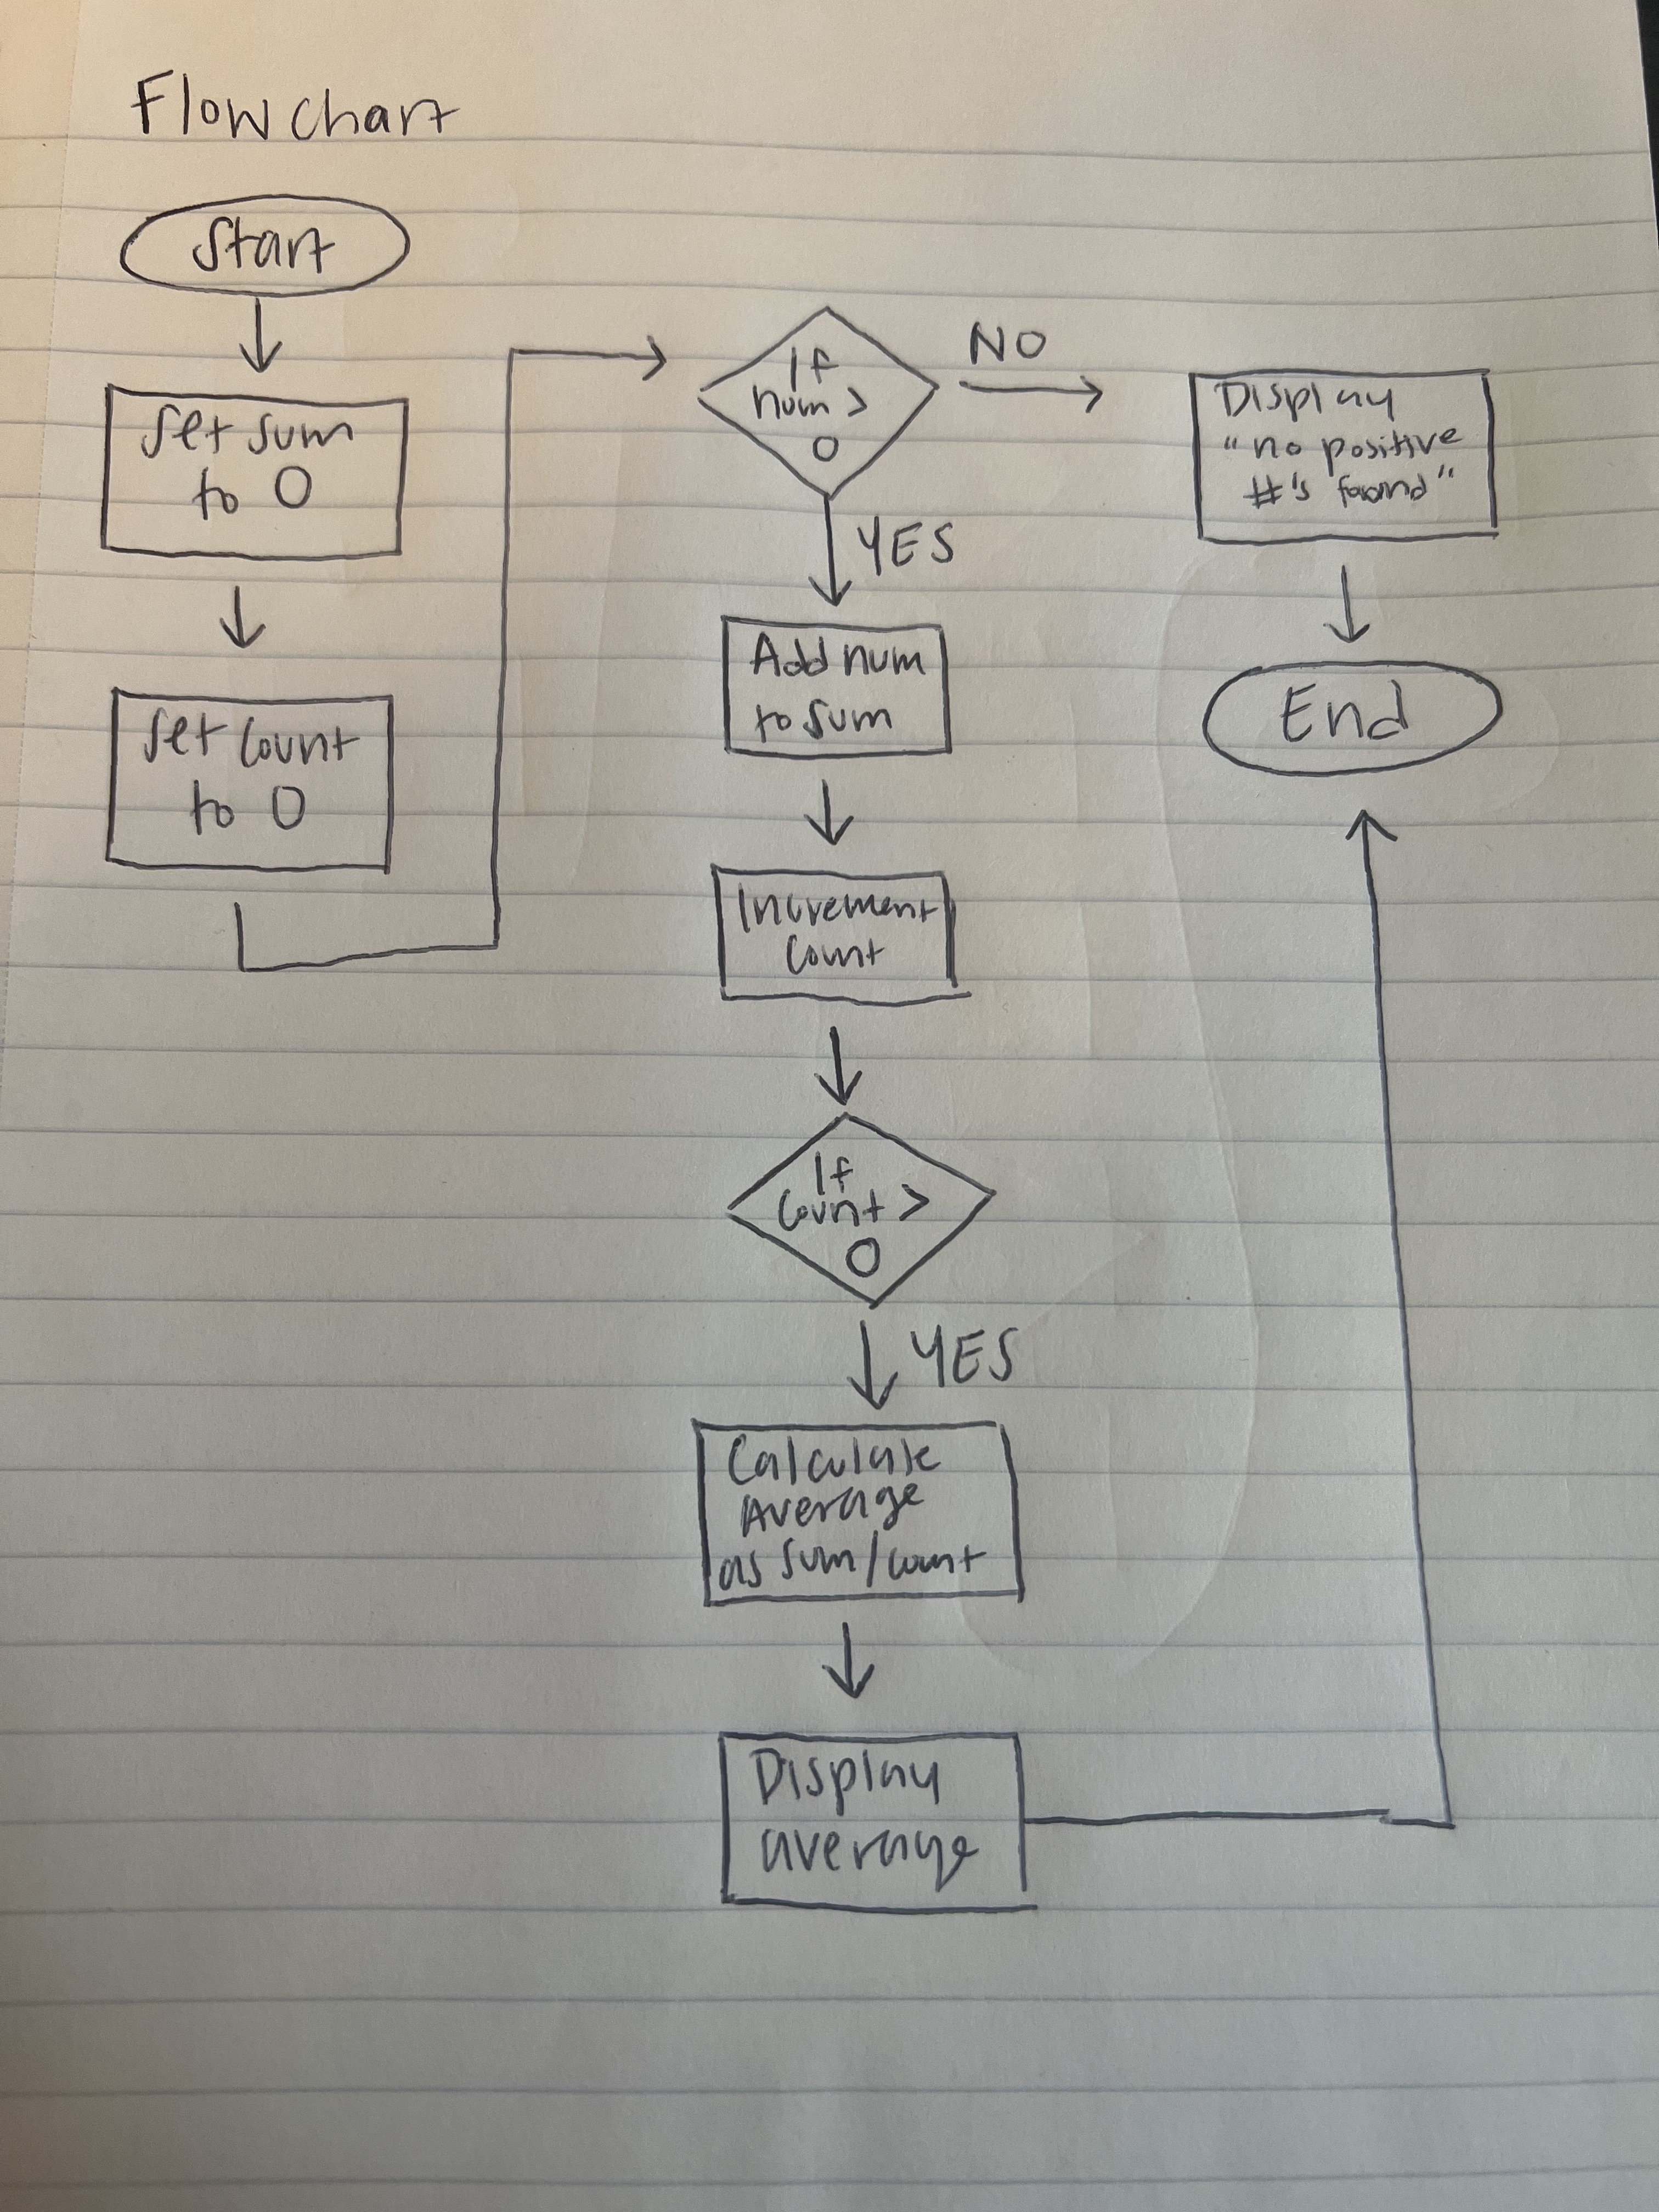 Flowchart
Start
Set sum
to 0
Set count
to 0
If
num >
0
NO
Display
"no positive
#'s found"
YES
End
Add num
to sum
Increment
Count
If
Count >
0
YES
Calculate
Average
as sum/count
Display
average